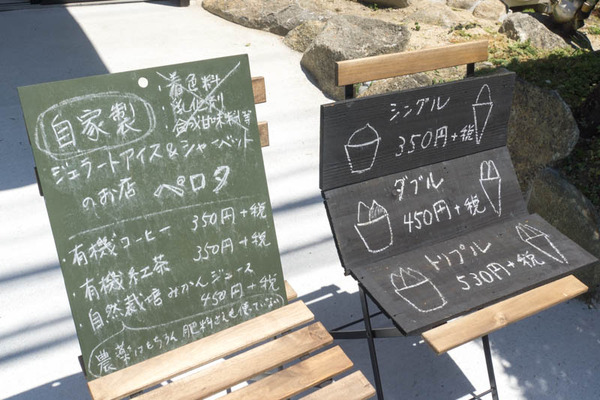 自家製
・着色料
・乳化剤
・合成甘味料等
ジェラートアイス&シャーベット
のお店 ペロタ
・有機コーヒー 350円+税
・有機紅茶 350円+税
・自然栽培みかんジュース
450円+税
農薬はもちろん肥料さえも使っていない
シングル
350円+税
ダブル
450円+税
トリプル
530円+税